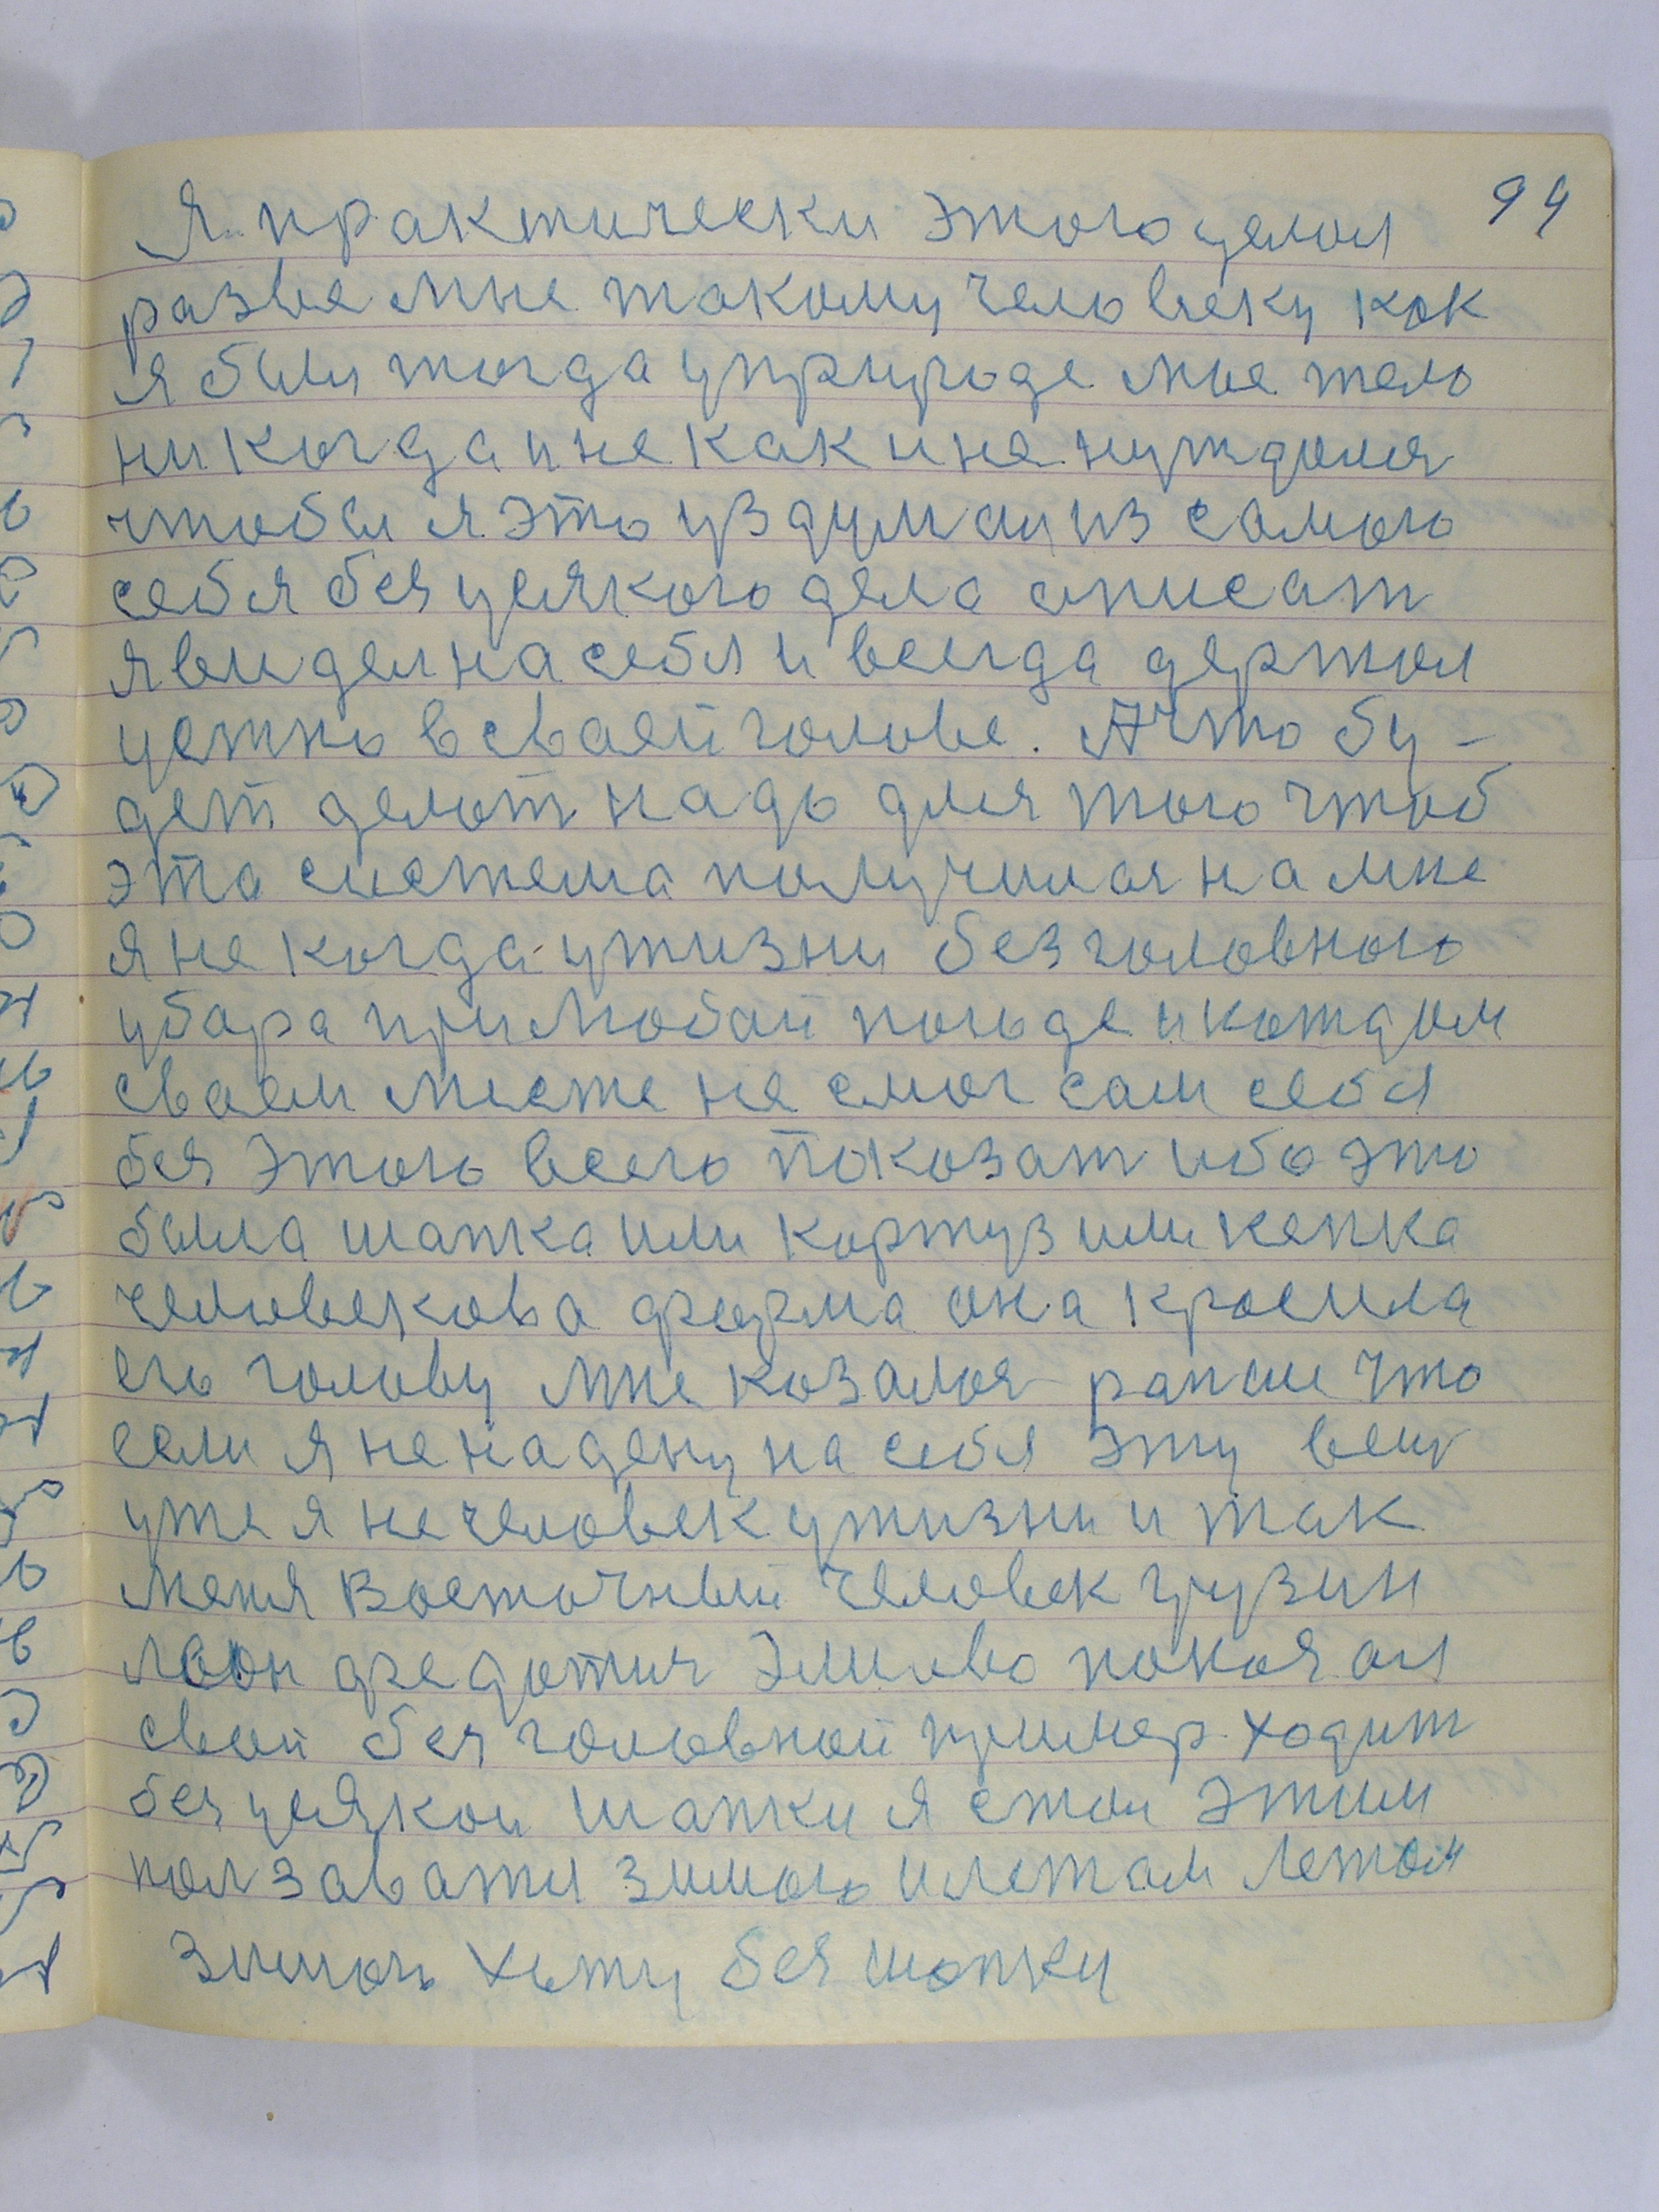 94
Я практически этого делол
разве мне такому человеку кок
я был тогда уприроде мое тело
ни когда и не как и не нуждолся
чтобы я это уздумал из самого
себя без усякого дела описат
я видел на себя и всегда держол
устно в сваей голове. А что бу-
дет делот надо для того чтоб
эта система получилася на мне
я не когда ужизни без головного
убара при любой погоде и кождом
сваем месте не смог сам себя
без этого всего показат ибо это
была шапка или кортуз или кепка
человекова форма она кросила
его голову мне козалося раньше что
если я не надену на себя эту вещ
уже я не человек ужизни и так
меня восточный человек грузин
Леон федотич Элиаво показал
свой без головной пример ходит
без усякой шапки я стол этим
ползаватся зимою и летам летом
зимою хожу без шопки